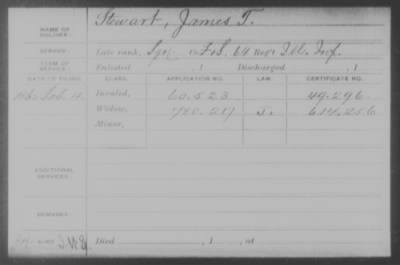 NAME OF SOLDIER: Stewart, James T.
SERVICE: Late rank, Co. F&S, 64 Reg't Ill. Inf.
TERM OF SERVICE: Enlisted , 1 Discharged , 1
DATE OF FILING. CLASS. APPLICATION NO. LAW. CERTIFICATE NO.
Invalid, 60.523 49.296
Widow, 780.217 614.256
Minor,
ADDITIONAL SERVICES:
REMARKS:
Died , 1 , at